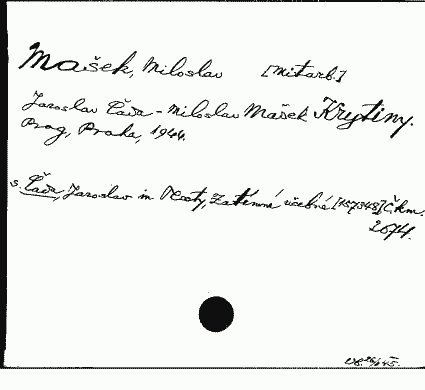 Mašek, Miloslav [Mitarb.]
Jaroslav Čáda - Miloslav Mašek Krytiny.
Prag, Praha, 1944.
s. Čáda, Jaroslav in Mosty, Zatímní učebné [157348] Č.km.
2674.